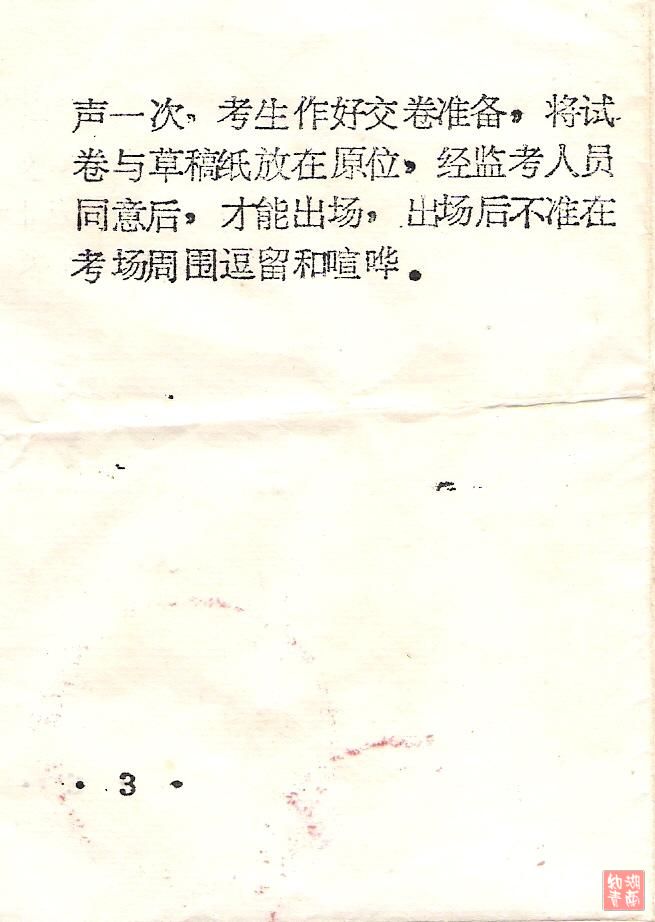 声一次，考生作好交卷准备，将试
卷与草稿纸放在原位，经监考人员
同意后，才能出场，出场后不准在
考场周围逗留和喧哗.
· 3 ·